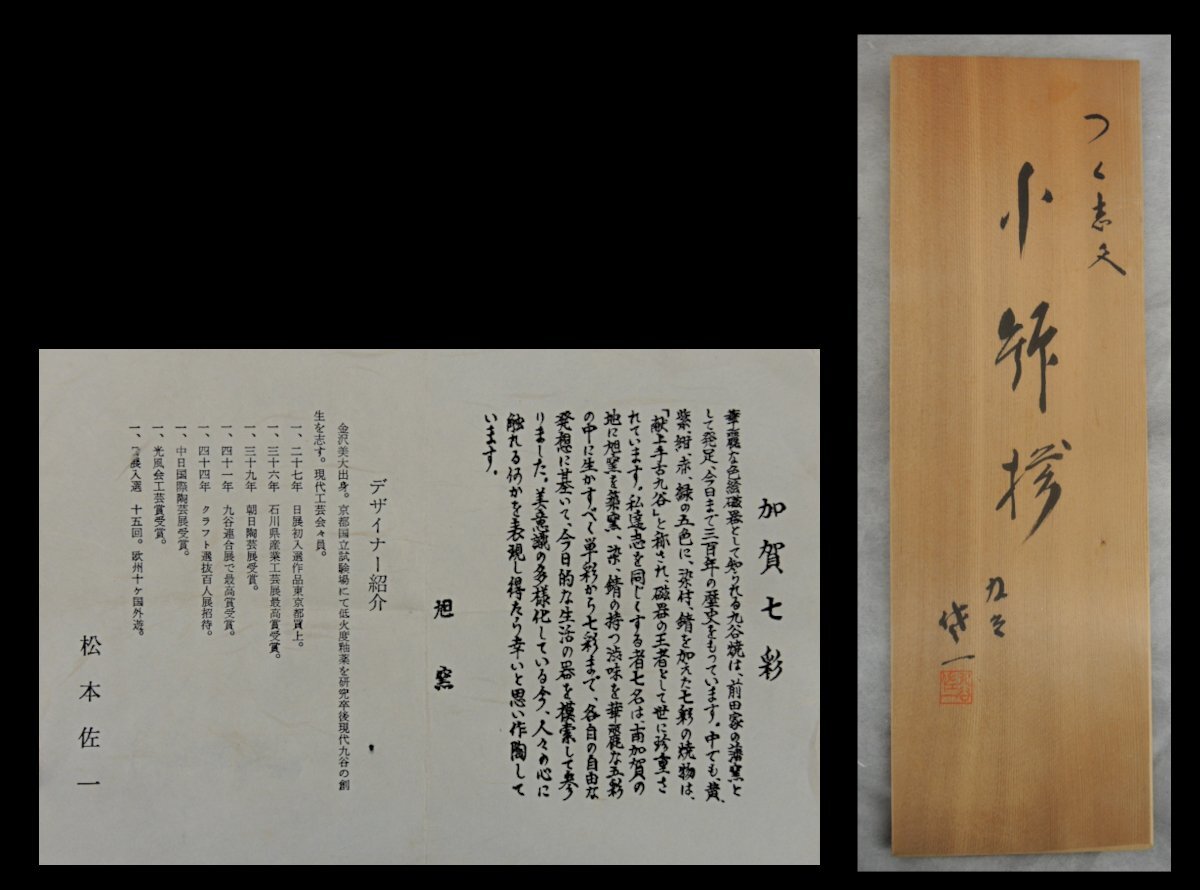 加賀七彩
華麗な色絵磁器として知られる九谷焼は、前田家の藩窯と
して発足、今日まで三百年の歴史をもっています。中でも、黄、
紫、紺、赤、緑の五色に、染付、錆を加えた七彩の焼物は、
「献上手古九谷」と称され、磁器の王者として世に珍重さ
れています。私達志を同じくする者七名は、南加賀の
地に旭窯を築窯、染、錆の持つ渋味を華麗な五彩
の中に生かすべく単彩から七彩まで、各自の自由な
発想に基いて、今日的な生活の器を模索して参
りました。美意識の多様化している今、人々の心に
触れる何かを表現し得たら幸いと思い作陶して
います。
旭窯
デザイナー紹介
金沢美大出身。京都国立試験場にて低火度釉薬を研究卒後現代九谷の創
生を志す。現代工芸会々員。
一、二十七年 日展初入選作品東京都買上。
一、三十六年 石川県産業工芸展最高賞受賞。
一、三十九年 朝日陶芸展受賞。
一、四十一年 九谷連合展で最高賞受賞。
一、四十四年 クラフト選抜百人展招待。
一、中日国際陶芸展受賞。
一、光風会工芸賞受賞。
一、日展入選 十五回。欧州十ヶ国外遊。
松本佐一
つくし文
小鉢揃
九谷
佐一